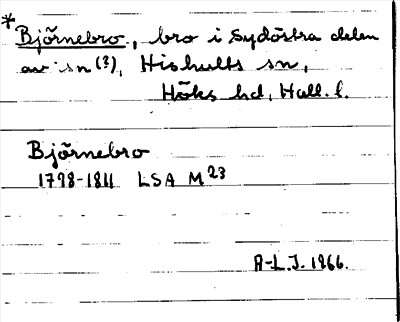 * Björnebro, bro i Sydöstra delen
av sn (?), Hishults sn,
Höks hd, Hall. l.
Björnebro
1798-1811 LSA M 23
A-L.J. 1966.